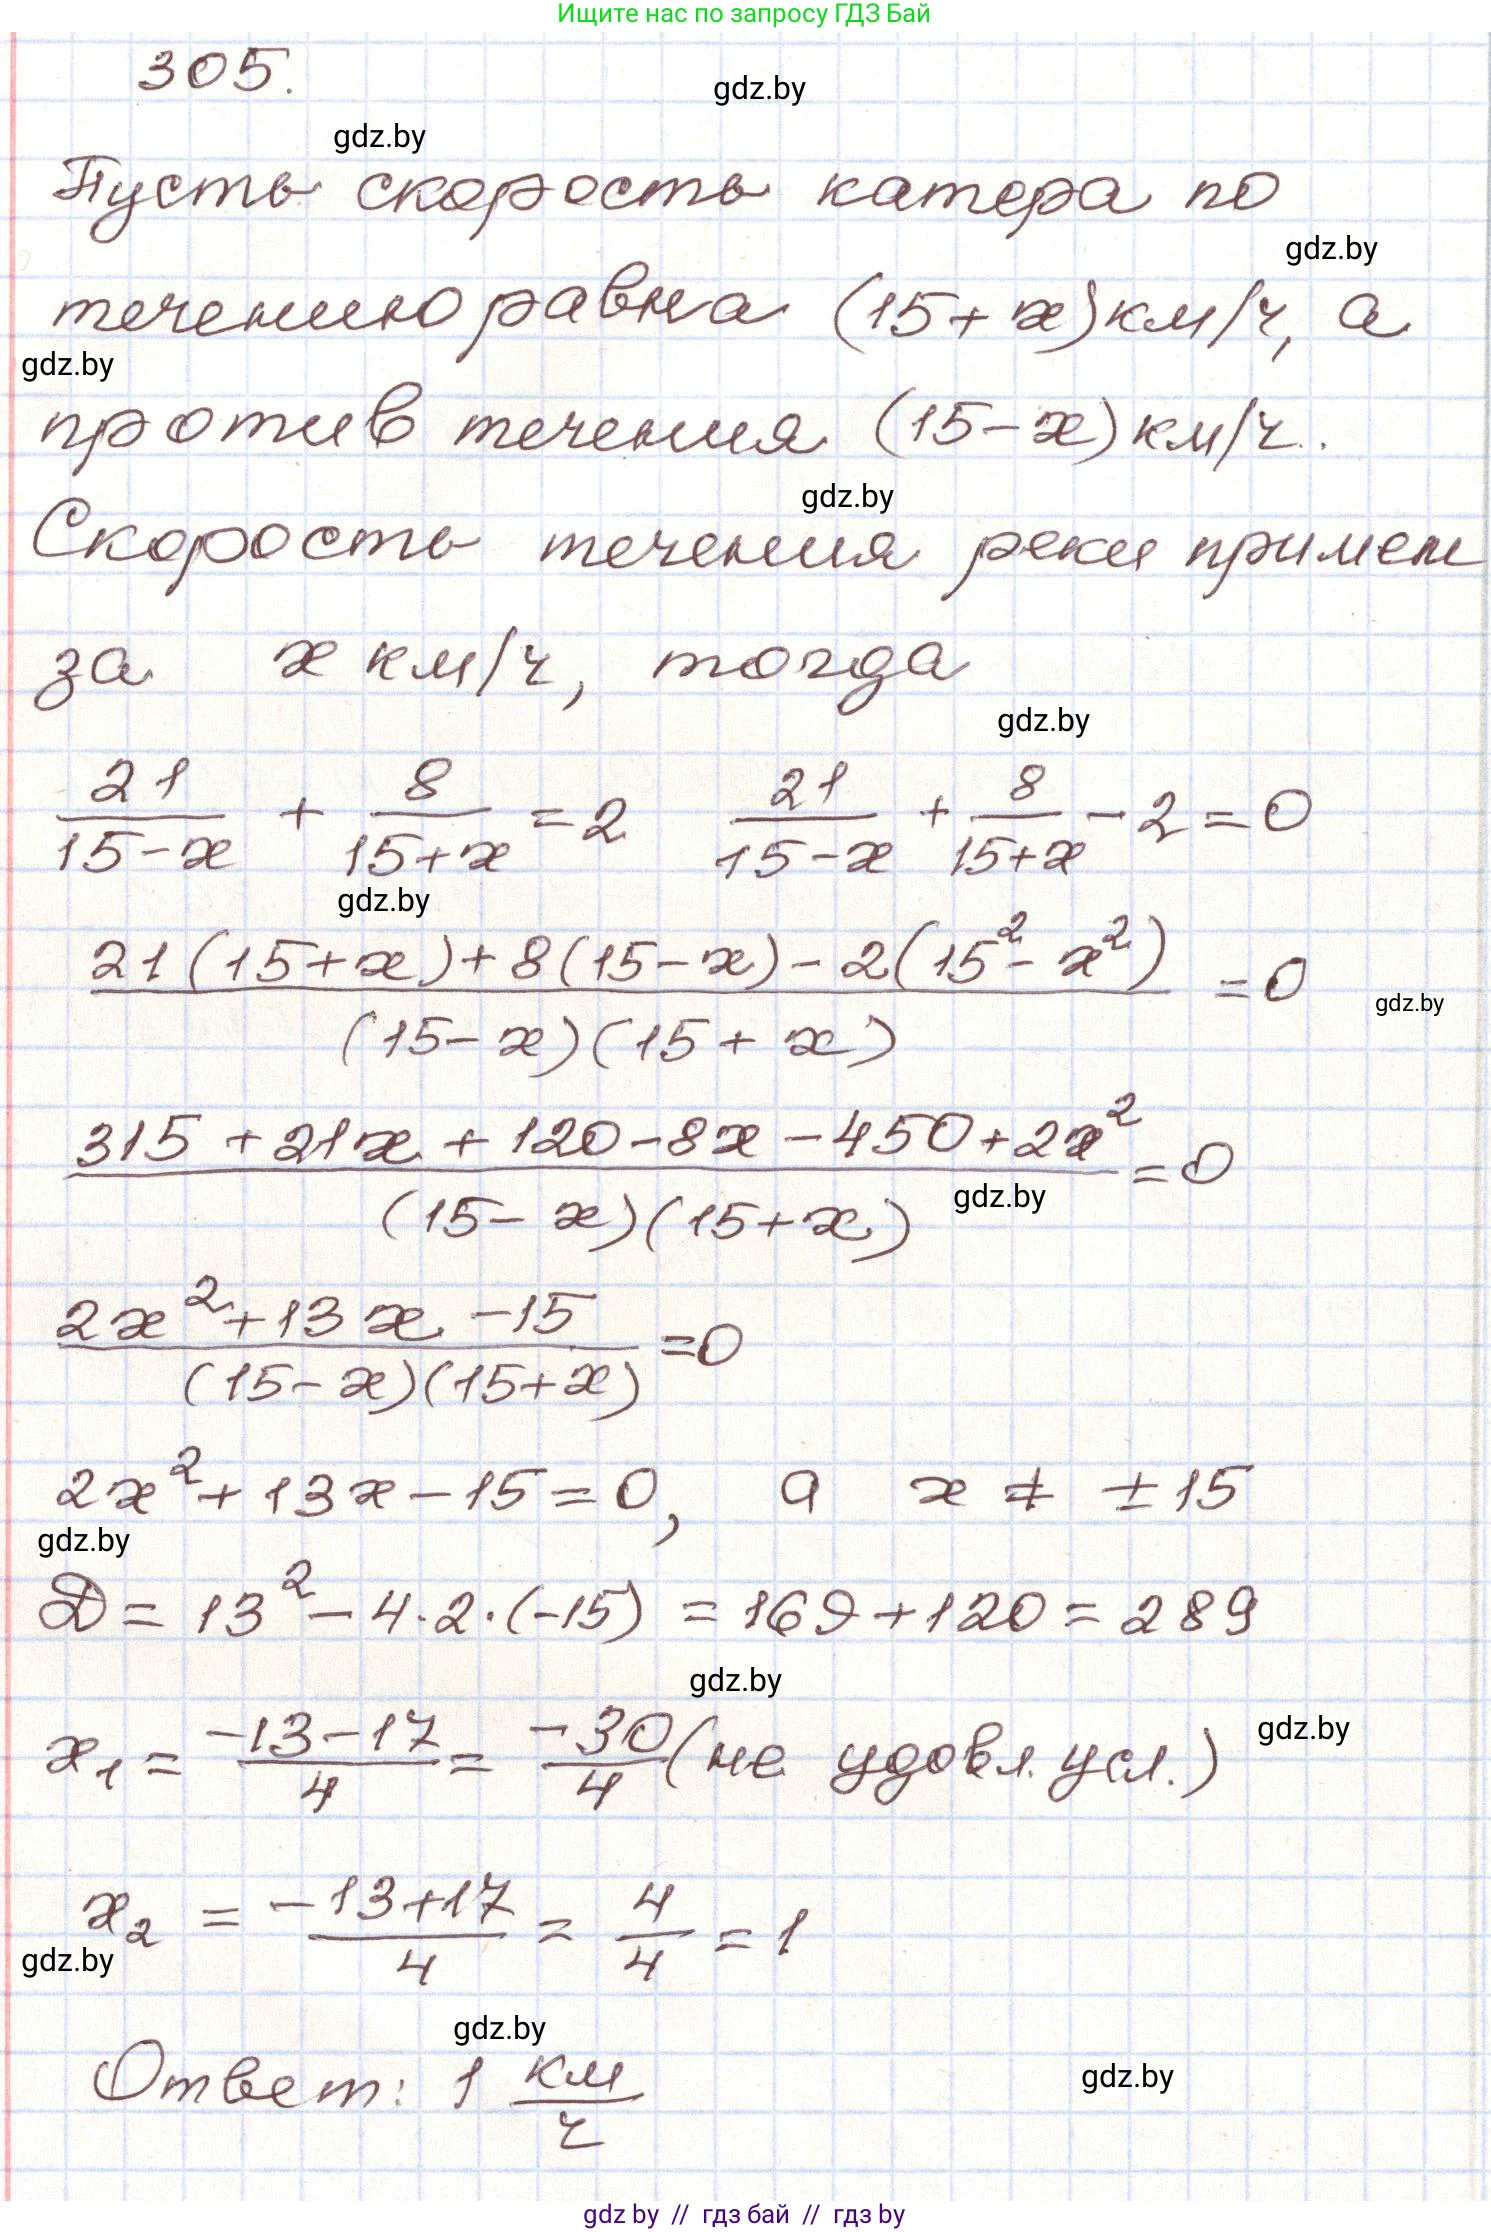 Ищите нас по запросу ГДЗ Бай
305.
gdz.by
gdz.by
Пусть скорость катера по
gdz.by
течению равна (15+x) км/ч, а
gdz.by
против течения (15-x) км/ч.
gdz.by
Скорость течения реки примем
за x км/ч, тогда
gdz.by
21/(15-x) + 8/(15+x) = 2   21/(15-x) + 8/(15+x) - 2 = 0
gdz.by
(21(15+x)+8(15-x)-2(15²-x²))/((15-x)(15+x)) = 0
gdz.by
(315+21x+120-8x-450+2x²)/((15-x)(15+x)) = 0
gdz.by
(2x²+13x-15)/((15-x)(15+x)) = 0
2x²+13x-15=0, а x ≠ ±15
gdz.by
D = 13² - 4·2·(-15) = 169+120 = 289
gdz.by
gdz.by
x₁ = (-13-17)/4 = -30/4 (не удовл. усл.)
x₂ = (-13+17)/4 = 4/4 = 1
gdz.by
gdz.by
Ответ: 1 км/ч
gdz.by
gdz by // гдз бай // гдз by